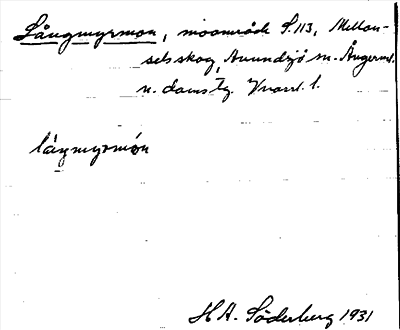 Långmyrmon, moområde S.113, Mellan-
selsskog, Anundsjö sn. Ångerml.
n. doms tg. Vnorrl. l.
låŋmyrmón
H A. Söderberg 1931